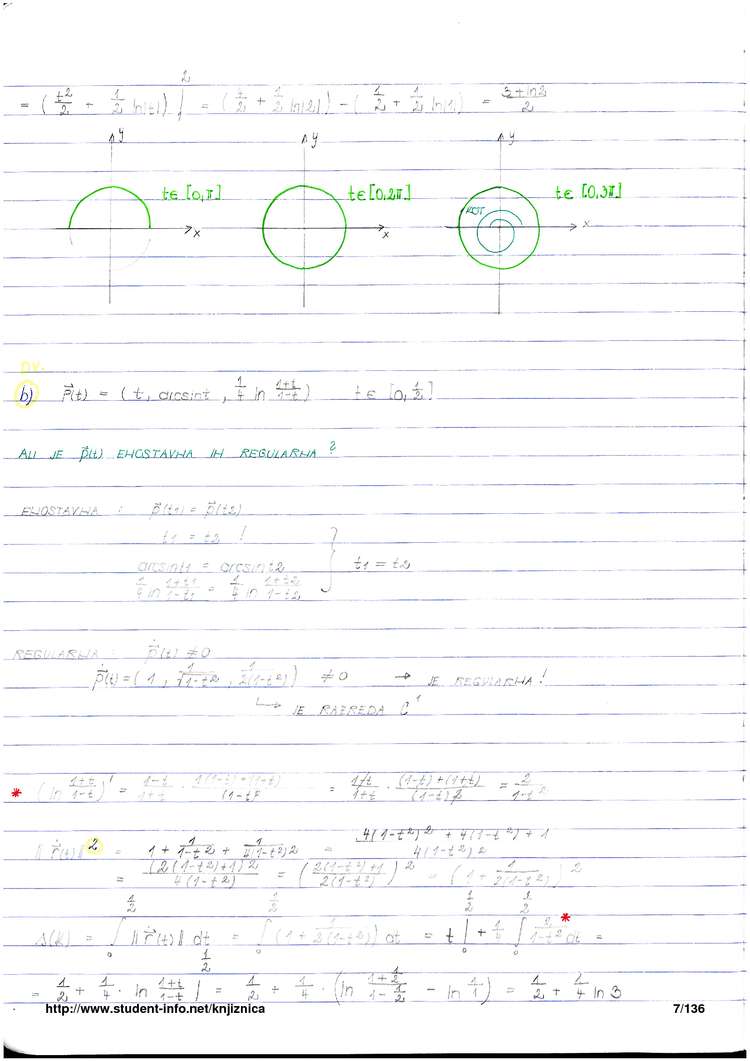 = ( t²/2 + 1/2 ln|t| ) |² = ( 4/2 + 1/2 ln|2| ) - ( 1/2 + 1/2 ln|1| ) = 3+ln2 / 2
y y y
t∈[0,π] t∈[0,2π] t∈[0,3π]
KOT
x x x
DV.
b) p⃗(t) = ( t, arcsint, 1/4 ln 1+t/1-t ) t∈[0,1/2]
ALI JE p⃗(t) ENOSTAVNA IN REGULARNA ?
ENOSTAVNA : p⃗(t1) = p⃗(t2)
t1 = t2 !
arcsint1 = arcsint2 } t1 = t2
1/4 ln 1+t1/1-t1 = 1/4 ln 1+t2/1-t2
REGULARNA : p⃗̇(t) ≠ 0
p⃗̇(t) = ( 1, 1/√1-t², 1/2(1-t²) ) ≠ 0 → JE REGULARNA !
↳ JE RAZREDA C¹
* (ln 1+t/1-t)' = 1-t/1+t · 1(1-t)+(1+t)/(1-t)² = 1-t/1+t · (1-t)+(1+t)/(1-t)² = 2/1-t²
‖r⃗̇(t)‖² = 1 + 1/1-t² + 1/4(1-t²)² = 4(1-t²)² + 4(1-t²) + 1 / 4(1-t²)²
= (2(1-t²)+1)²/4(1-t²) = ( 2(1-t²)+1/2(1-t²) )² = ( 1 + 1/2(1-t²) )²
s(K) = ∫₀^1/2 ‖r⃗̇(t)‖ dt = ∫₀^1/2 ( 1 + 1/2(1-t²) ) dt = t |₀^1/2 + 1/4 ∫₀^1/2 2/1-t² * dt =
= 1/2 + 1/4 · ln 1+t/1-t |₀^1/2 = 1/2 + 1/4 · ( ln 1+1/2 / 1-1/2 - ln 1/1 ) = 1/2 + 1/4 ln3
http://www.student-info.net/knjiznica 7/136